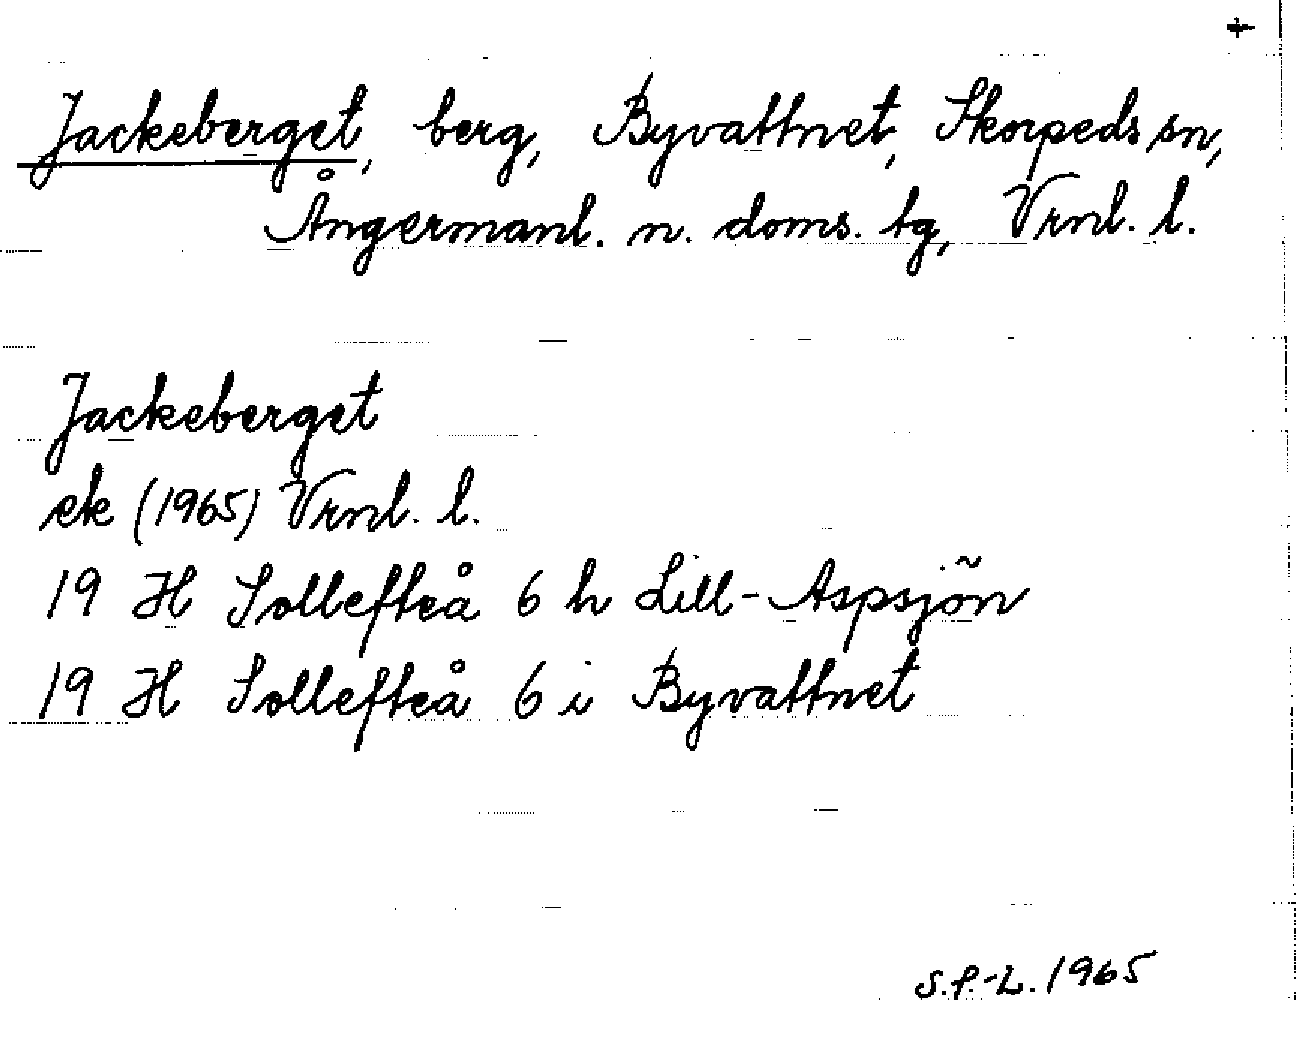 +
Jackeberget, berg, Byvattnet, Skorpeds sn,
Ångermanl. n. doms. tg, Vrnl. l.
Jackeberget
ek (1965) Vrnl. l.
19 H Sollefteå 6 h Lill-Aspsjön
19 H Sollefteå 6 i Byvattnet
S.P.-L. 1965